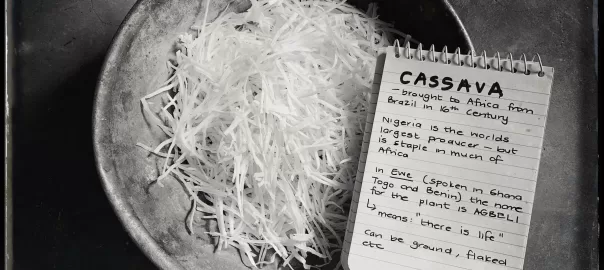 CASSAVA
- brought to Africa from
Brazil in 16th Century
Nigeria is the worlds
largest producer - but
is staple in much of
Africa
In Ewe (spoken in Ghana
Togo and Benin) the name
for the plant is AGBELI
↳ means: "there is life"
can be ground, flaked
etc